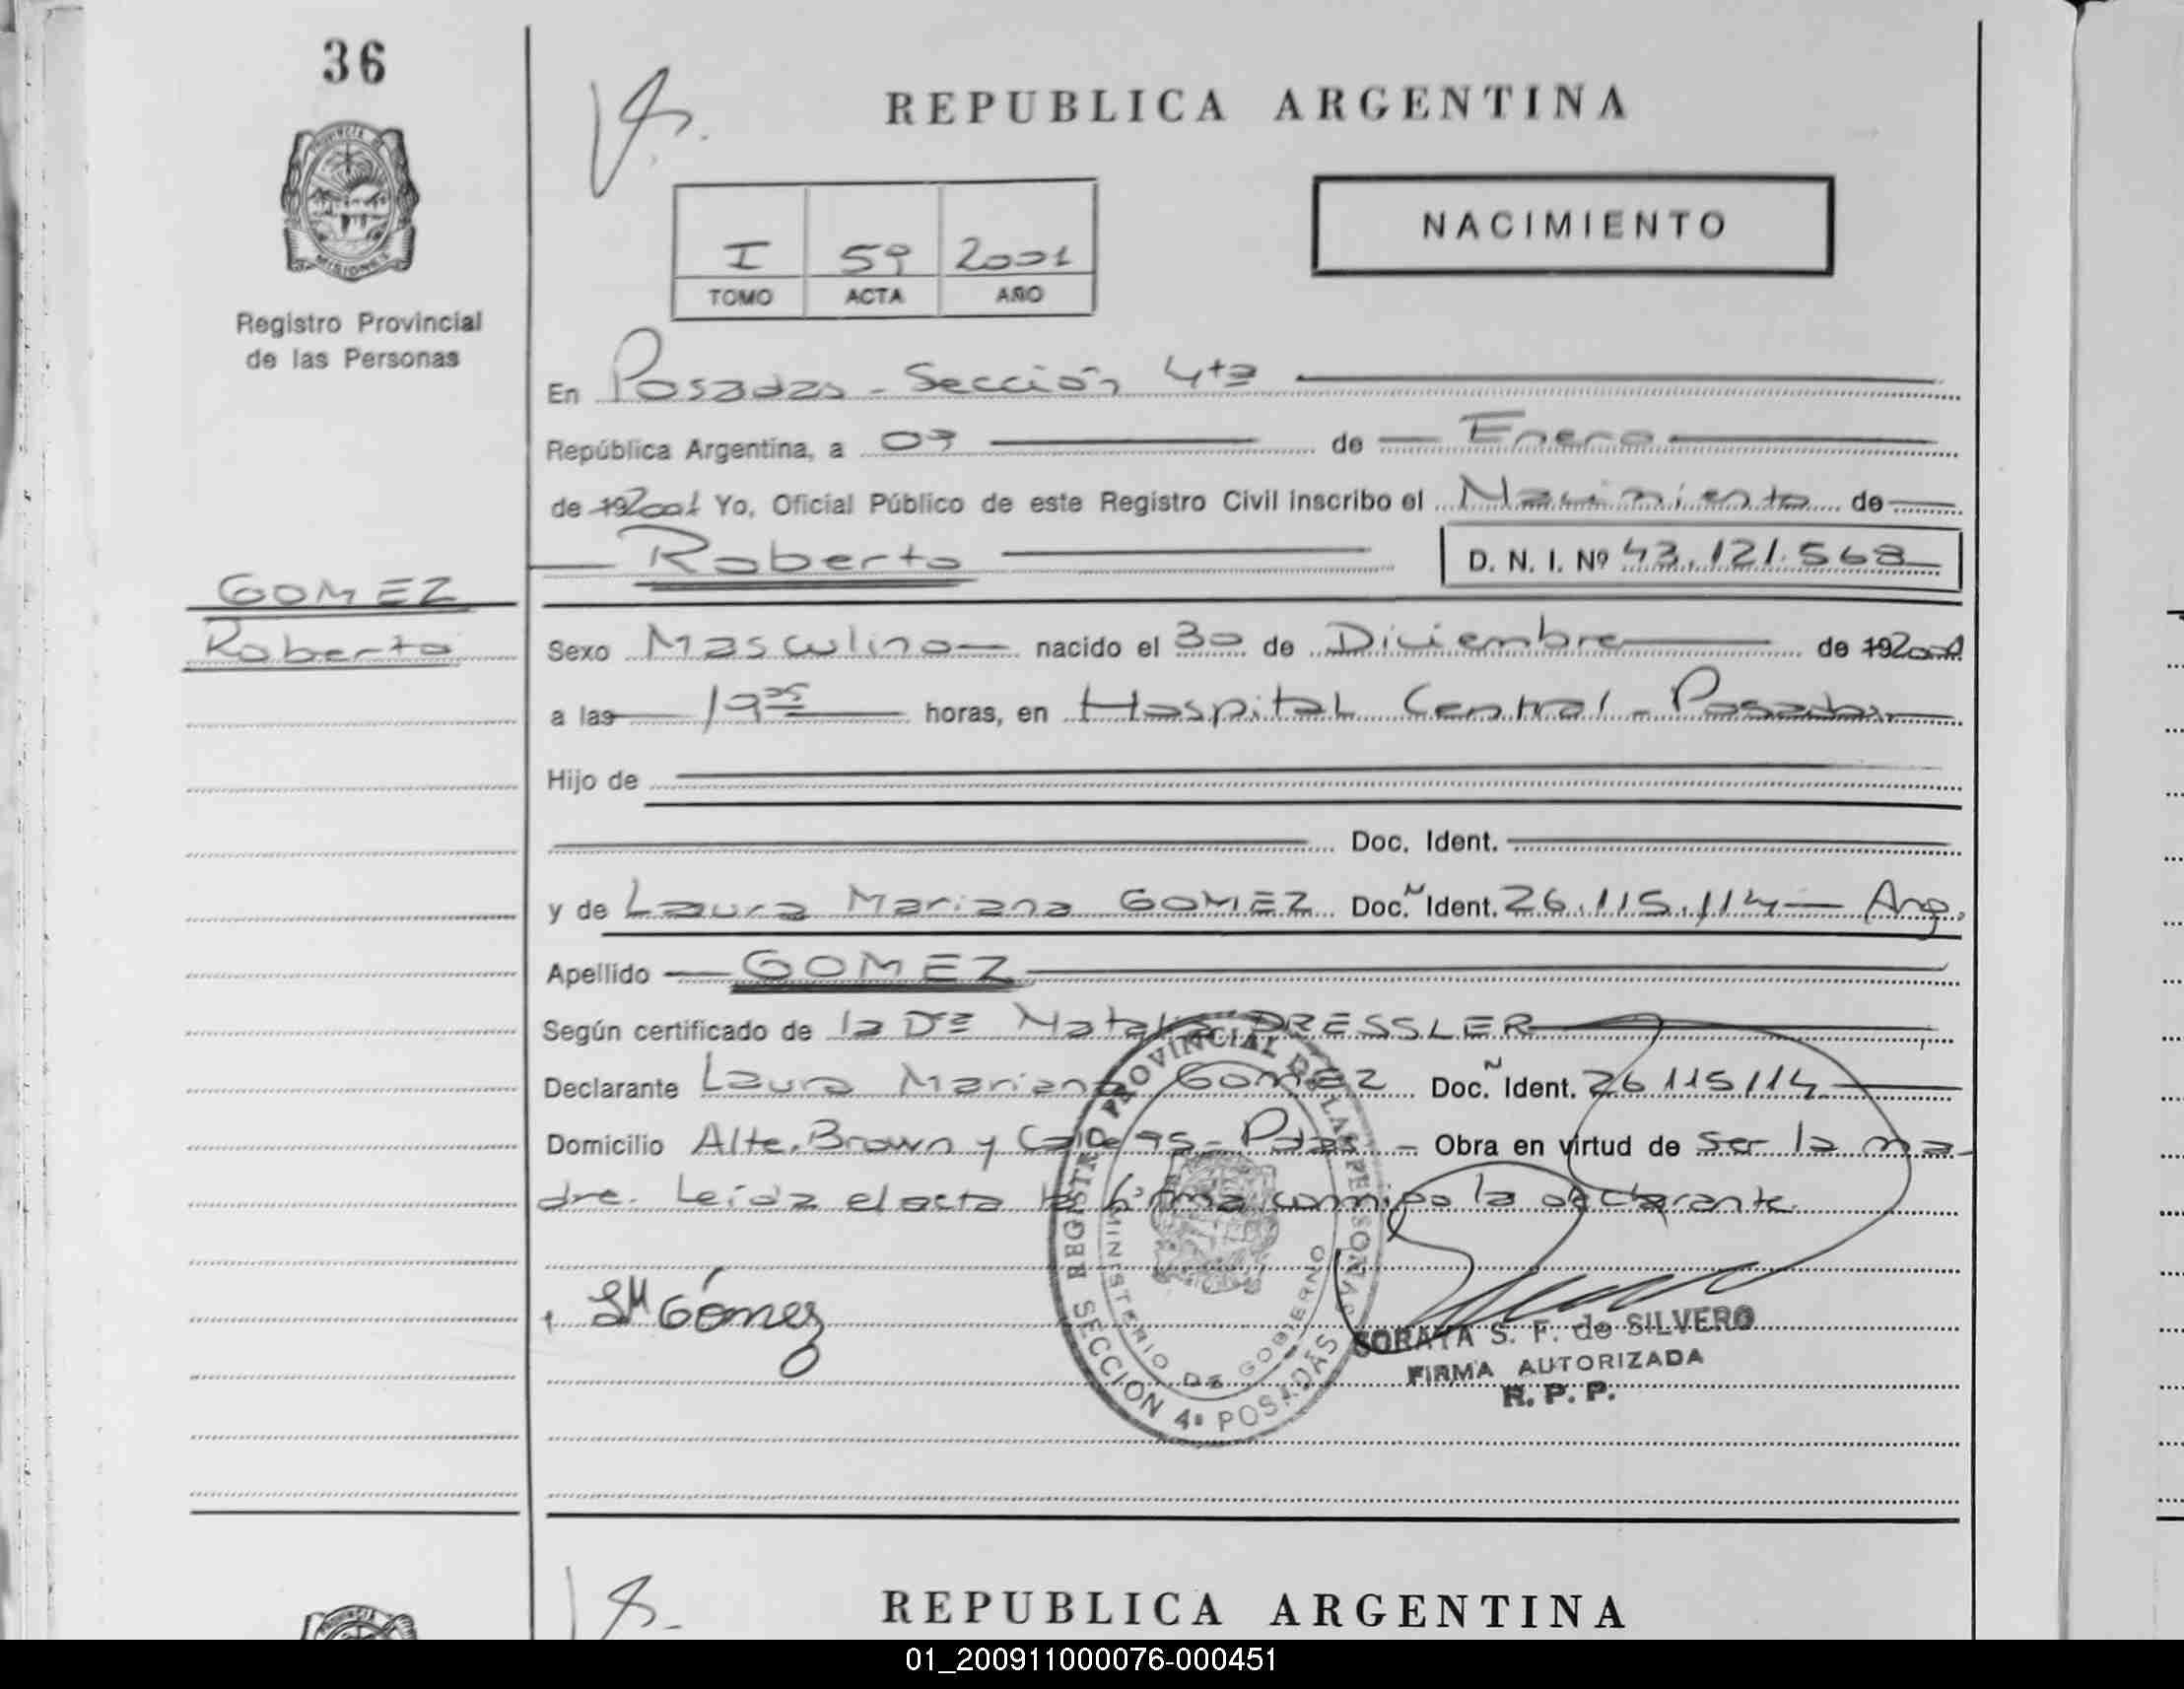 36
PROVINCIA
MISIONES
Registro Provincial
de las Personas
REPUBLICA ARGENTINA
NACIMIENTO
I 59 2001
TOMO ACTA AÑO
En Posadas - Sección 4ta
República Argentina, a 03 de Enero
de 192001 Yo, Oficial Público de este Registro Civil inscribo el Nacimiento de
Roberto D. N. I. Nº 43.121.568
GOMEZ
Roberto
Sexo Masculino nacido el 30 de Diciembre de 192000
a las 19 horas, en Hospital Central - Posadas
Hijo de
Doc. Ident.
y de Laura Mariana GOMEZ Doc. Ident. 26.115.114 - Arg.
Apellido GOMEZ
Según certificado de la Dra Natalia DRESSLER
Declarante Laura Mariana Gomez Doc. Ident. 26.115.114
Domicilio Alte. Brown y - Pdas - Obra en virtud de ser la ma
dre. Leida el acta la firma conmigo la declarante.
REGISTRO PROVINCIAL DE LAS PERSONAS
MINISTERIO DE GOBIERNO
SECCION 4ª POSADAS
LM Gómez
SORAYA S. F. de SILVERO
FIRMA AUTORIZADA
R. P. P.
REPUBLICA ARGENTINA
PROVINCIA
01_200911000076-000451